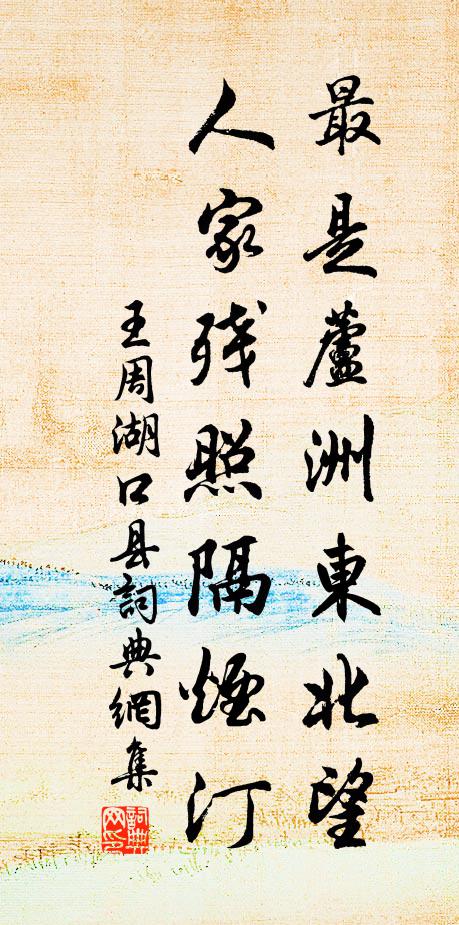 最是蘆洲東北望
人家残照隔煙汀
王周湖口县詞典網集
詞典网印